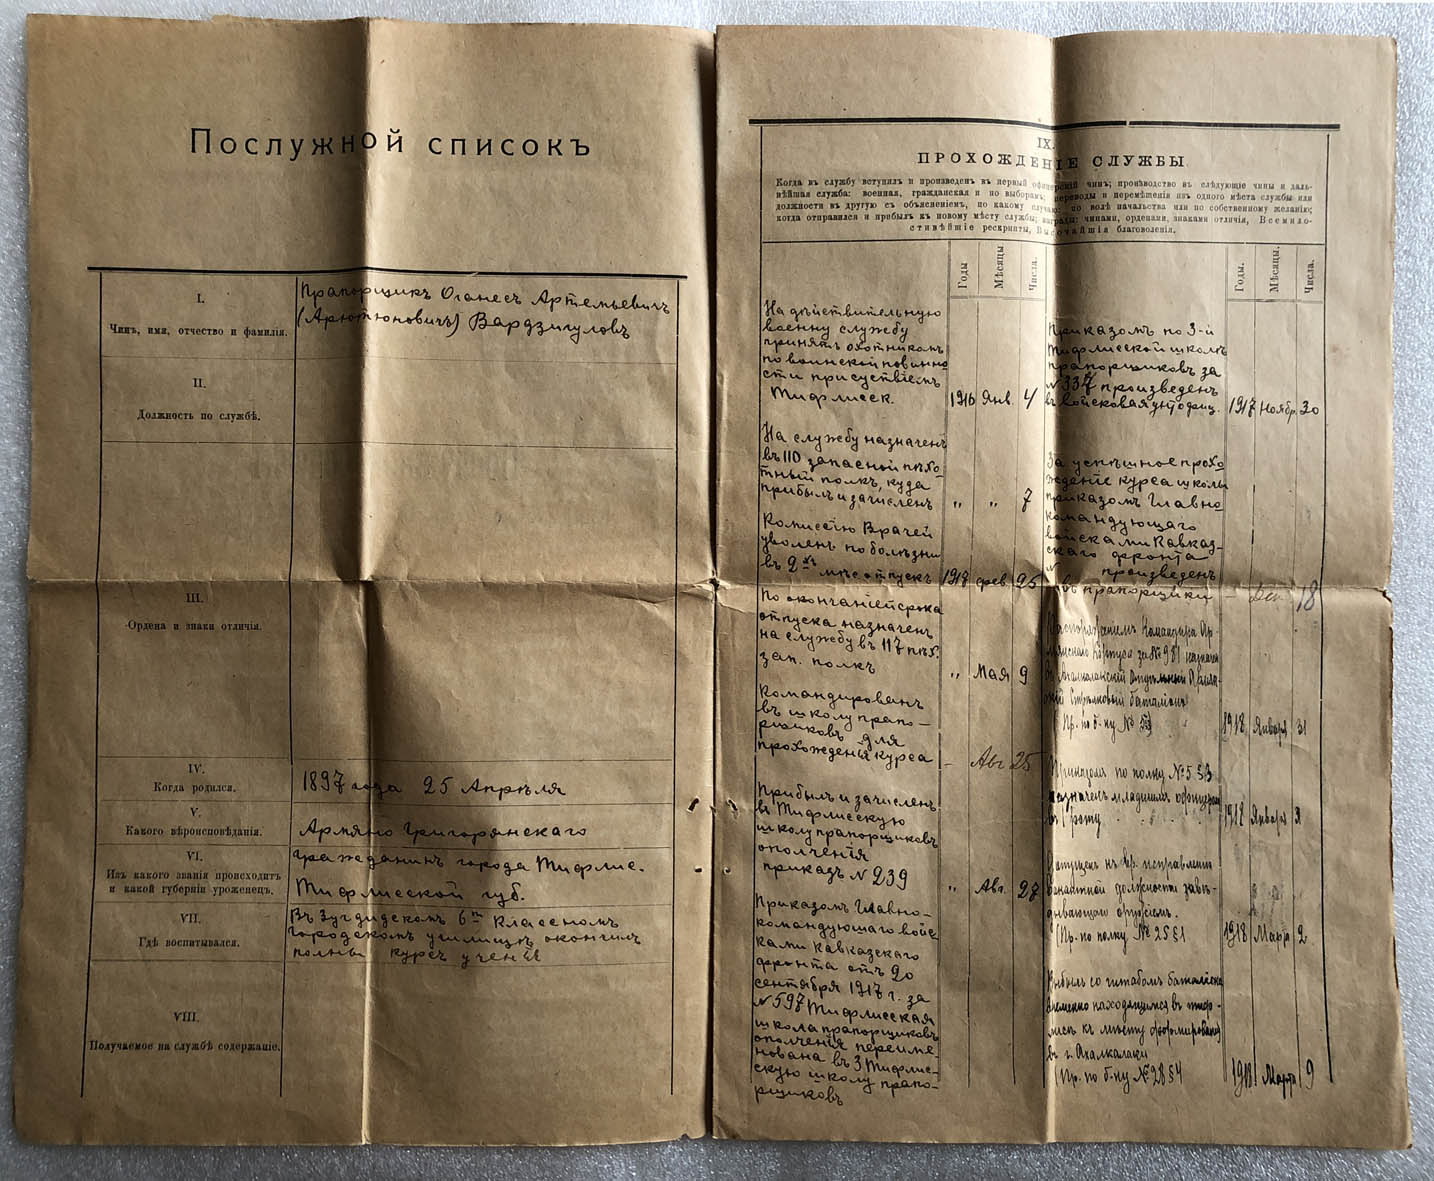 Послужной списокъ
I.
Чинъ, имя, отчество и фамилія.
Прапорщикъ Оганесъ Артемьевичъ
(Арютюновичъ) Вардзигуловъ
II.
Должность по службѣ.
III.
Ордена и знаки отличія.
IV.
Когда родился.
1897 года 25 Апрѣля
V.
Какого вѣроисповѣданія.
Армяно Григорянскаго
VI.
Изъ какого званія происходитъ
и какой губерніи уроженецъ.
гражданинъ города Тифлис.
Тифлисской губ.
VII.
Гдѣ воспитывался.
Въ Зугдидскомъ 6ти классномъ
городскомъ училищѣ окончилъ
полный курсъ ученія
VIII.
Получаемое на службѣ содержаніе.
IX.
ПРОХОЖДЕНІЕ СЛУЖБЫ.
Когда въ службу вступилъ и произведенъ въ первый офицерскій чинъ; производство въ слѣдующіе чины и даль-
нѣйшая служба: военная, гражданская и по выборамъ; переводы и перемѣщенія изъ одного мѣста службы или
должности въ другую съ объясненіемъ, по какому случаю: по волѣ начальства или по собственному желанію;
когда отправился и прибылъ къ новому мѣсту службы; награды: чинами, орденами, знаками отличія, Всемило-
стивѣйшіе рескрипты, Высочайшія благоволенія.
Годы
Мѣсяцы.
Числа.
На дѣйствительную
военну службу
принятъ охотникомъ
по воинской повинно
сти присуствіемъ
Тифлисск. 1916 Янв. 4
На службу назначенъ
въ 110 запасной пѣхо
тный полкъ, куда
прибылъ и зачисленъ " " 7
Комиссіею Врачей
уволенъ по болѣзни
въ 2хъ мѣс отпускъ 1917 фев. 25
По окончаніе срока
отпуска назначенъ
на службу въ 117 пѣх.
зап. полкъ " Мая 9
Командированъ
въ школу прапо-
рщиковъ для
прохожденья курса - Авг 25
Прибылъ и зачисленъ
въ Тифлисскую
школу прапорщиковъ
ополченія
приказъ N 239 " Авг. 27
Приказомъ Главно-
командующаго войс
ками Кавказскаго
фронта отъ 20
сентября 1917 г. за
N 597 Тифлисская
школа прапорщиковъ
ополченія переиме-
нована въ 3 Тифлис-
скую школу прапо-
рщиковъ
Годы.
Мѣсяцы.
Числа.
Приказомъ по 3-й
Тифлисской школѣ
прапорщиковъ за
N 337 произведенъ
въ войсковая унт офиц. 1917 Ноябр. 30
За успѣшное прохо
жденіе курса школы
приказомъ Главно
командующаго
войсками Кавказ-
скаго фронта
N произведенъ
въ прапорщики - Дек 18
Командира Ар-
мянскаго Корпуса за № 981 назначен
въ Ахалкалакскій Отдѣльный Армян-
скій Стрѣлковый баталіонъ
(Пр. по б-ну № 1918 Января 31
по полку № 5 § 3
назначенъ младшимъ офицеромъ
въ роту 1918 Января
Допущенъ къ вр. исправленію
вакантной должности завѣ-
дывающаго оружіемъ.
(Пр. по полку № 25 § 1 1918 Марта 2
Выбылъ со штабомъ баталіона
временно находящимся въ Тиф-
лисѣ къ мѣсту сформированія
въ г. Ахалкалаки
(Пр. по б-ну № 28 § 4 1918 Марта 9